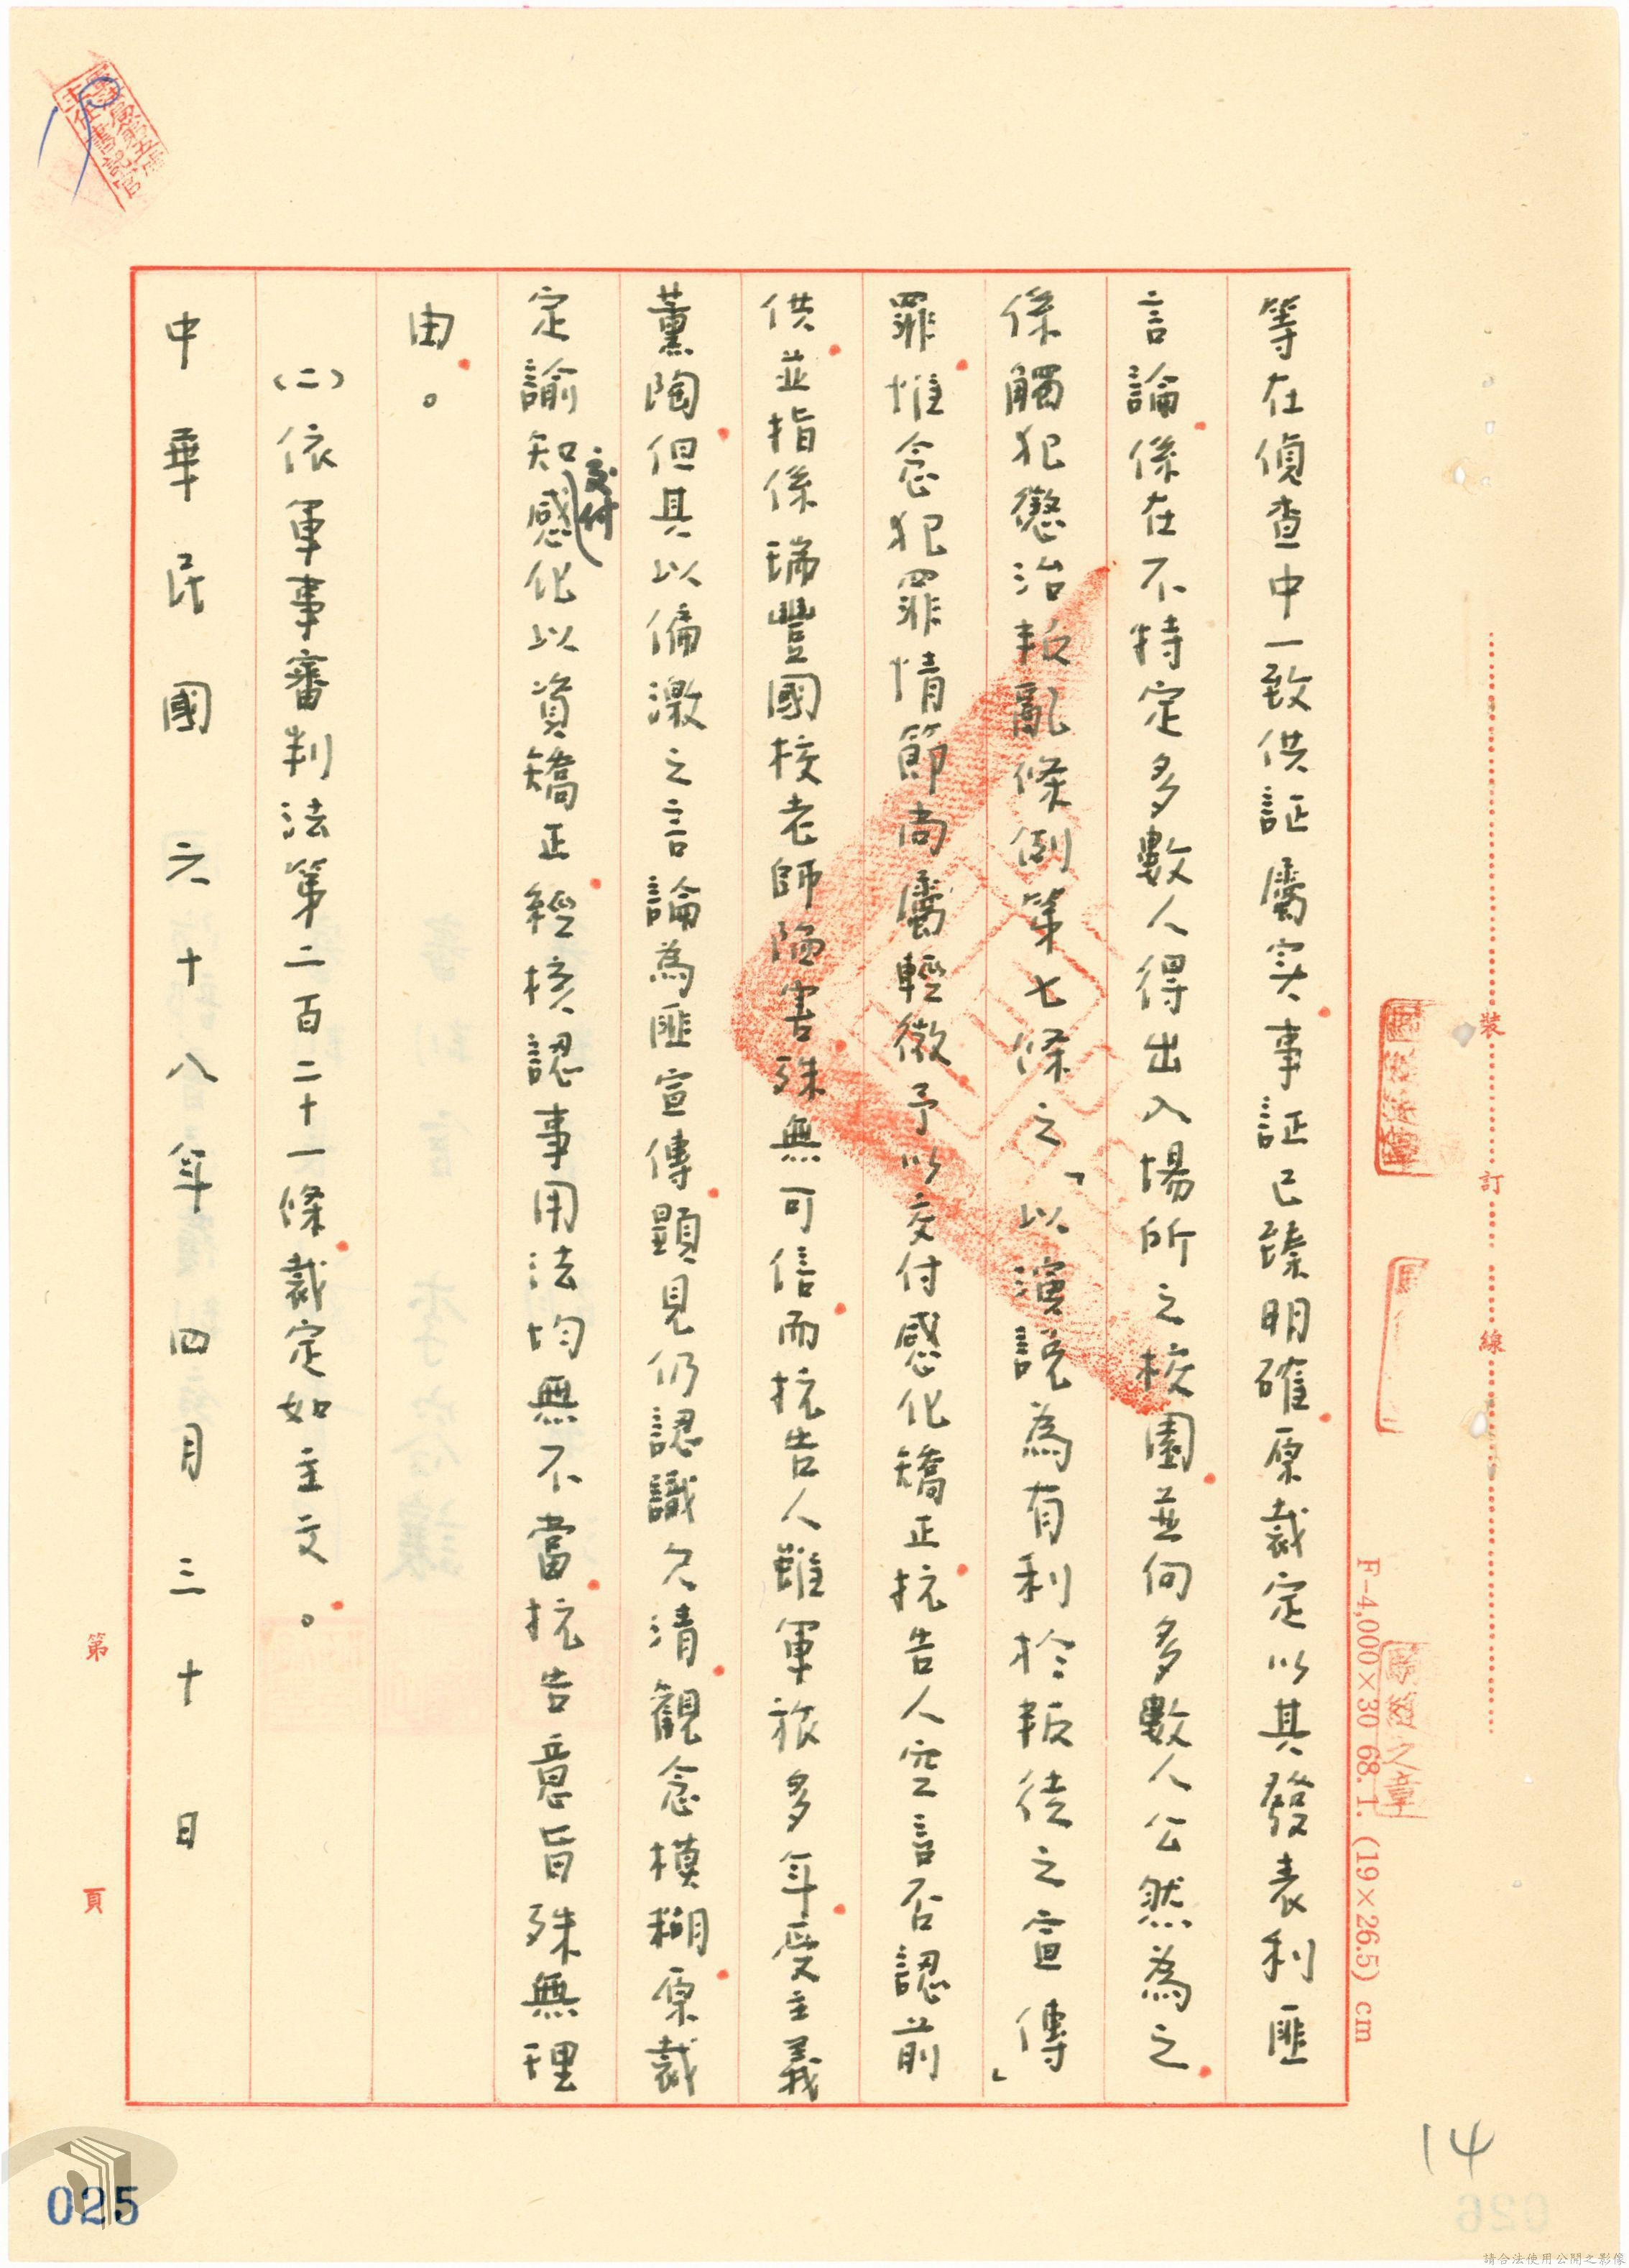 等在偵查中一致供証屬实事証已臻明確原裁定以其發表利匪
言論係在不特定多數人得出入場所之校園並向多數人公然為之
係觸犯懲治叛亂條例第七條之「以演說為有利於叛徒之宣傳」
罪惟念犯罪情節尚屬輕微予以交付感化矯正抗告人空言否認前
供並指係瑞豐國校老師陷害殊無可信而抗告人雖軍旅多年受主義
薰陶但其以偏激之言論為匪宣傳顯見仍認識欠清觀念模糊原裁
定諭知交付感化以資矯正經核認事用法均無不當抗告意旨殊無理
由。
(二)依軍事審判法第二百二十一條裁定如主文。
中華民國六十八年四月三十日
裝
訂
線
F-4,000×30 68.1. (19×26.5) cm
第
頁
14
025
請合法使用公開之影像